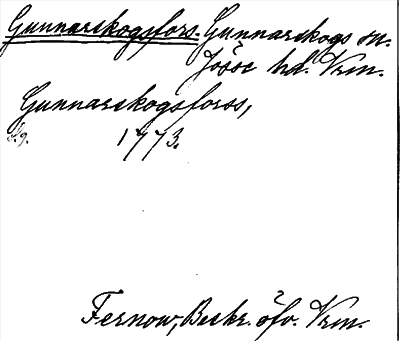 Gunnarskogsfors. Gunnarskogs sn.
Jösse hd. Vrm.
Gunnarskogsforss,
1773.
Fernow, Beskr. öfv. Vrm.